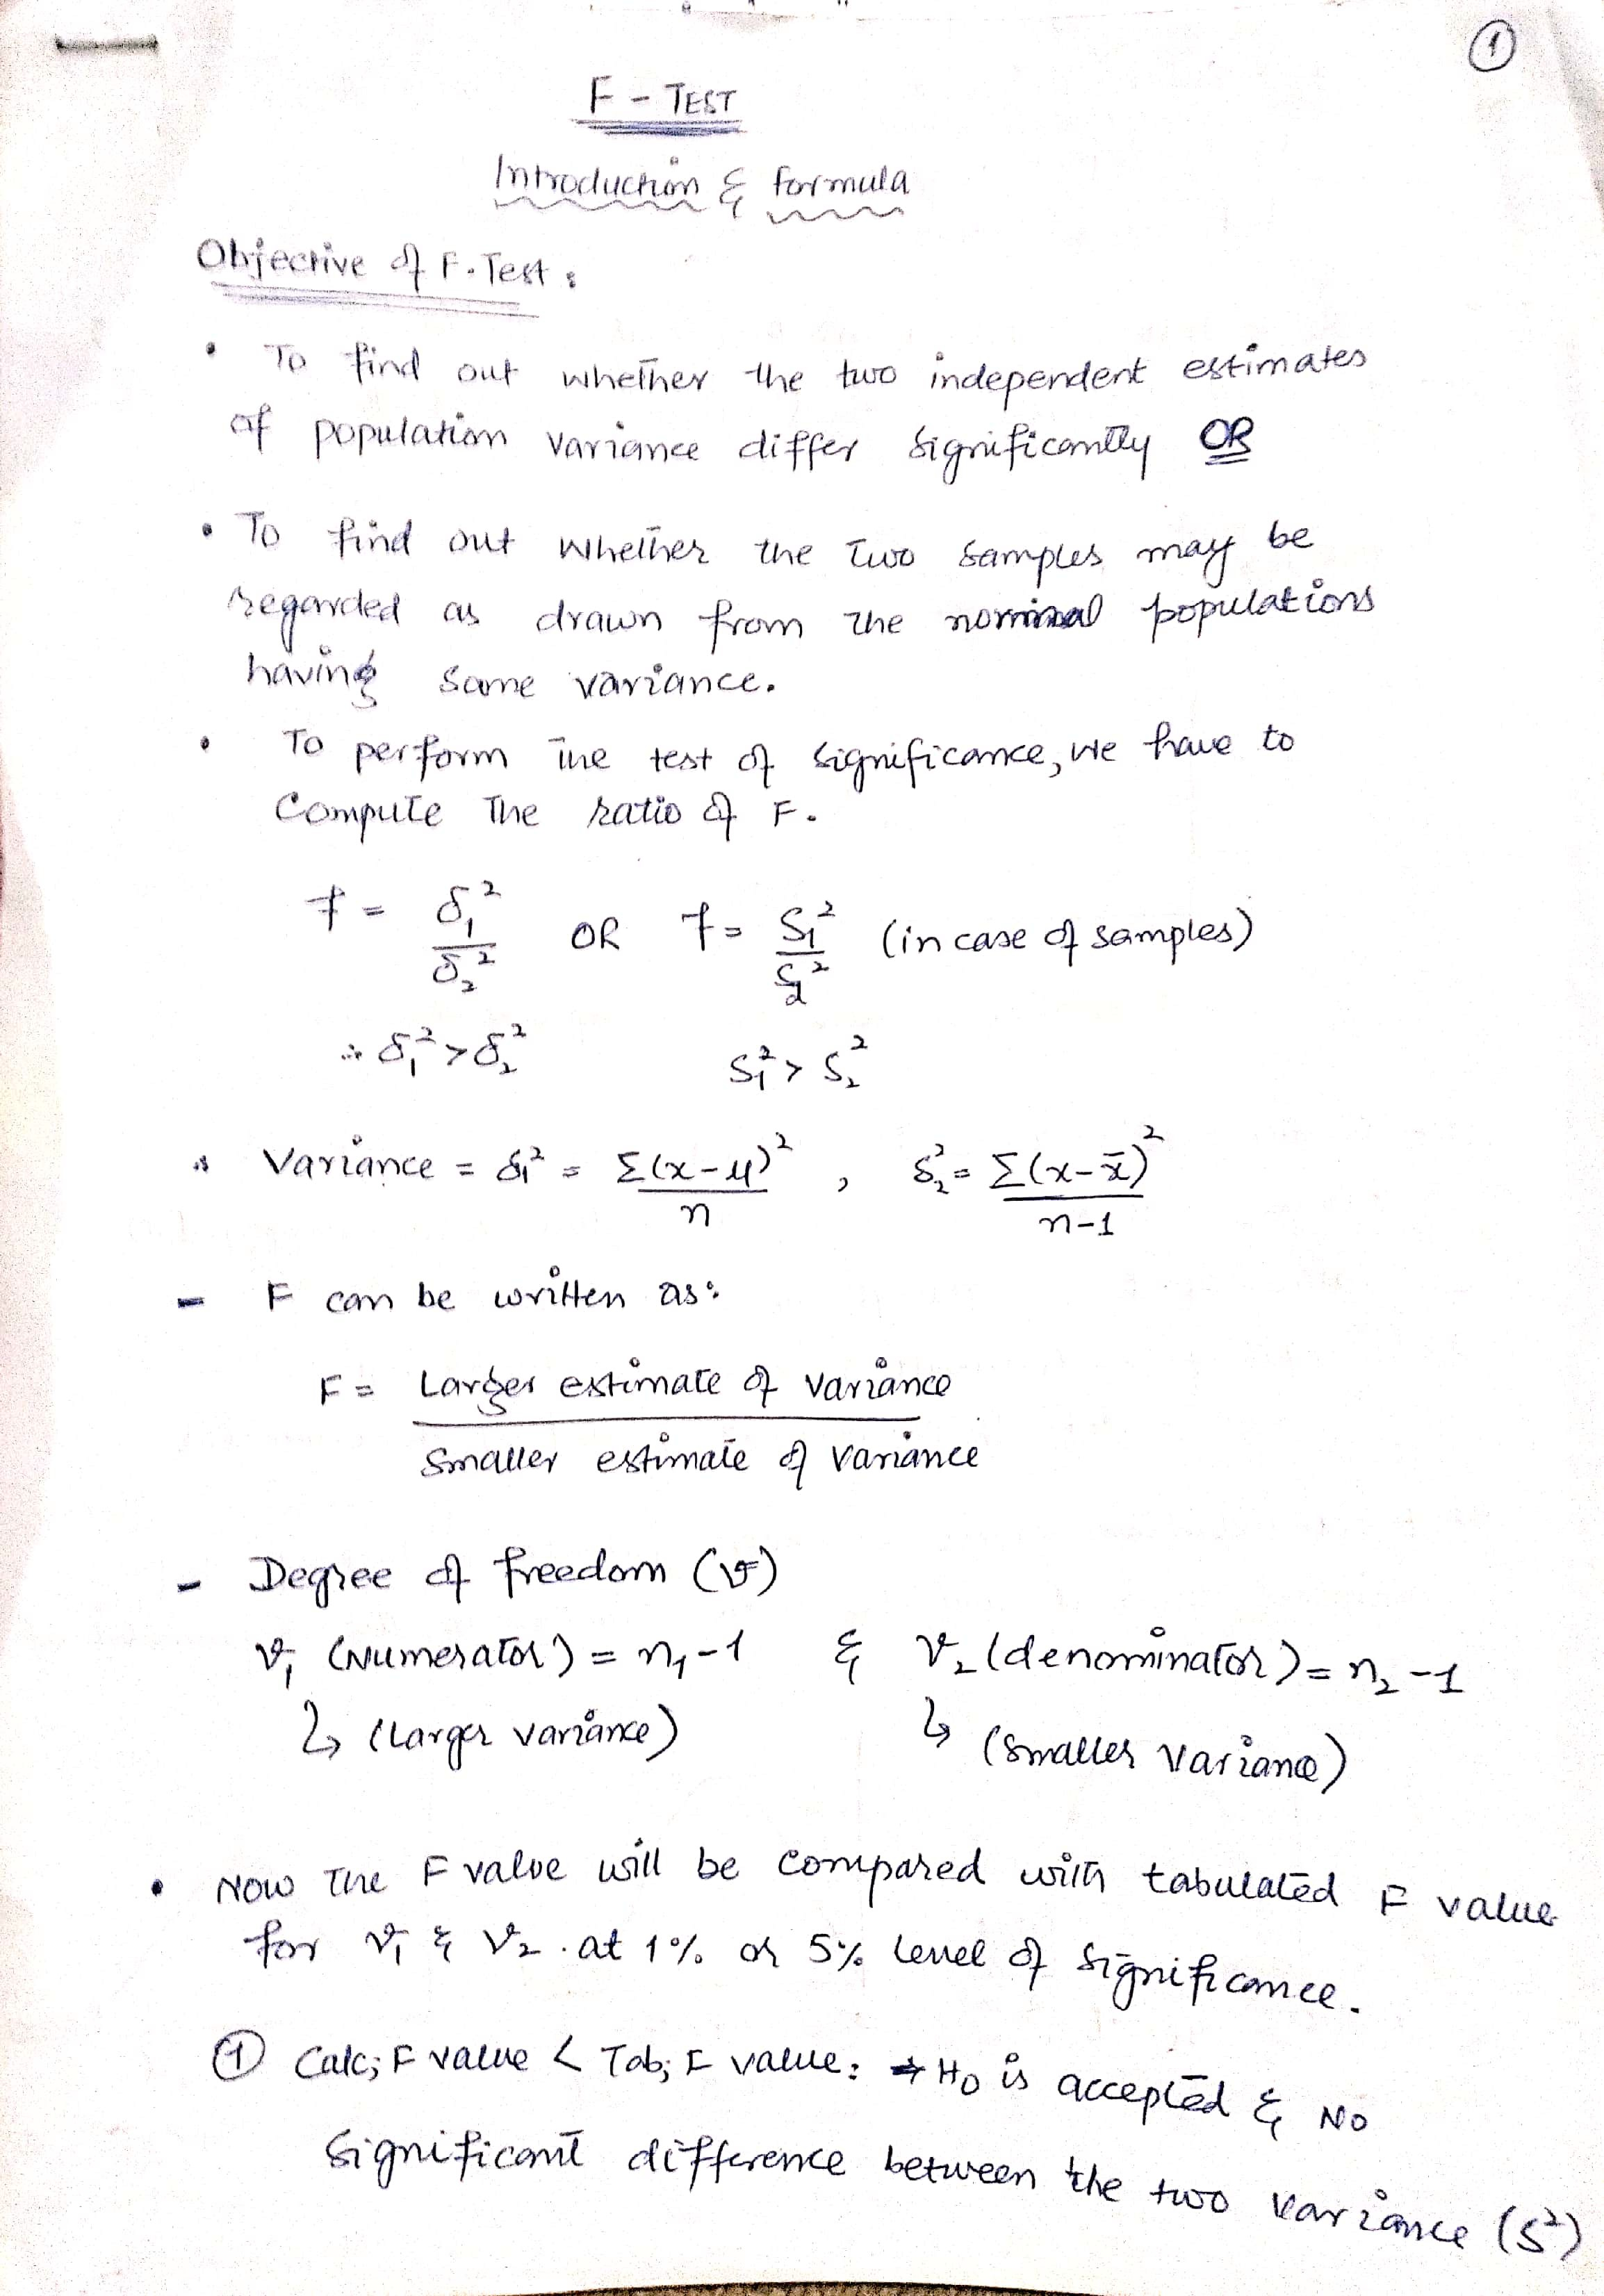 ①
F - TEST
Introduction & formula
Objective of F. Test :
• To find out whether the two independent estimates
of population variance differ significantly OR
• To find out whether the two samples may be
regarded as drawn from the normal populations
having same variance.
• To perform the test of significance, we have to
Compute The ratio of F.
F = δ₁² / δ₂² OR F = S₁² / S₂² (in case of samples)
∴ δ₁² > δ₂² S₁² > S₂²
Variance = δ₁² = Σ(x-μ)² / n , δ₂² = Σ(x-x̄)² / n-1
- F can be written as:
F = Larger estimate of variance
Smaller estimate of variance
- Degree of freedom (v)
v₁ (Numerator) = n₁-1 & v₂ (denominator) = n₂-1
↳ (Larger variance) ↳ (Smaller variance)
• Now The F value will be compared with tabulated F value
for v₁ & v₂ . at 1% or 5% level of significance.
① Calc; F value < Tab; F value: ⇒ H₀ is accepted & No
significant difference between the two variance (S²)